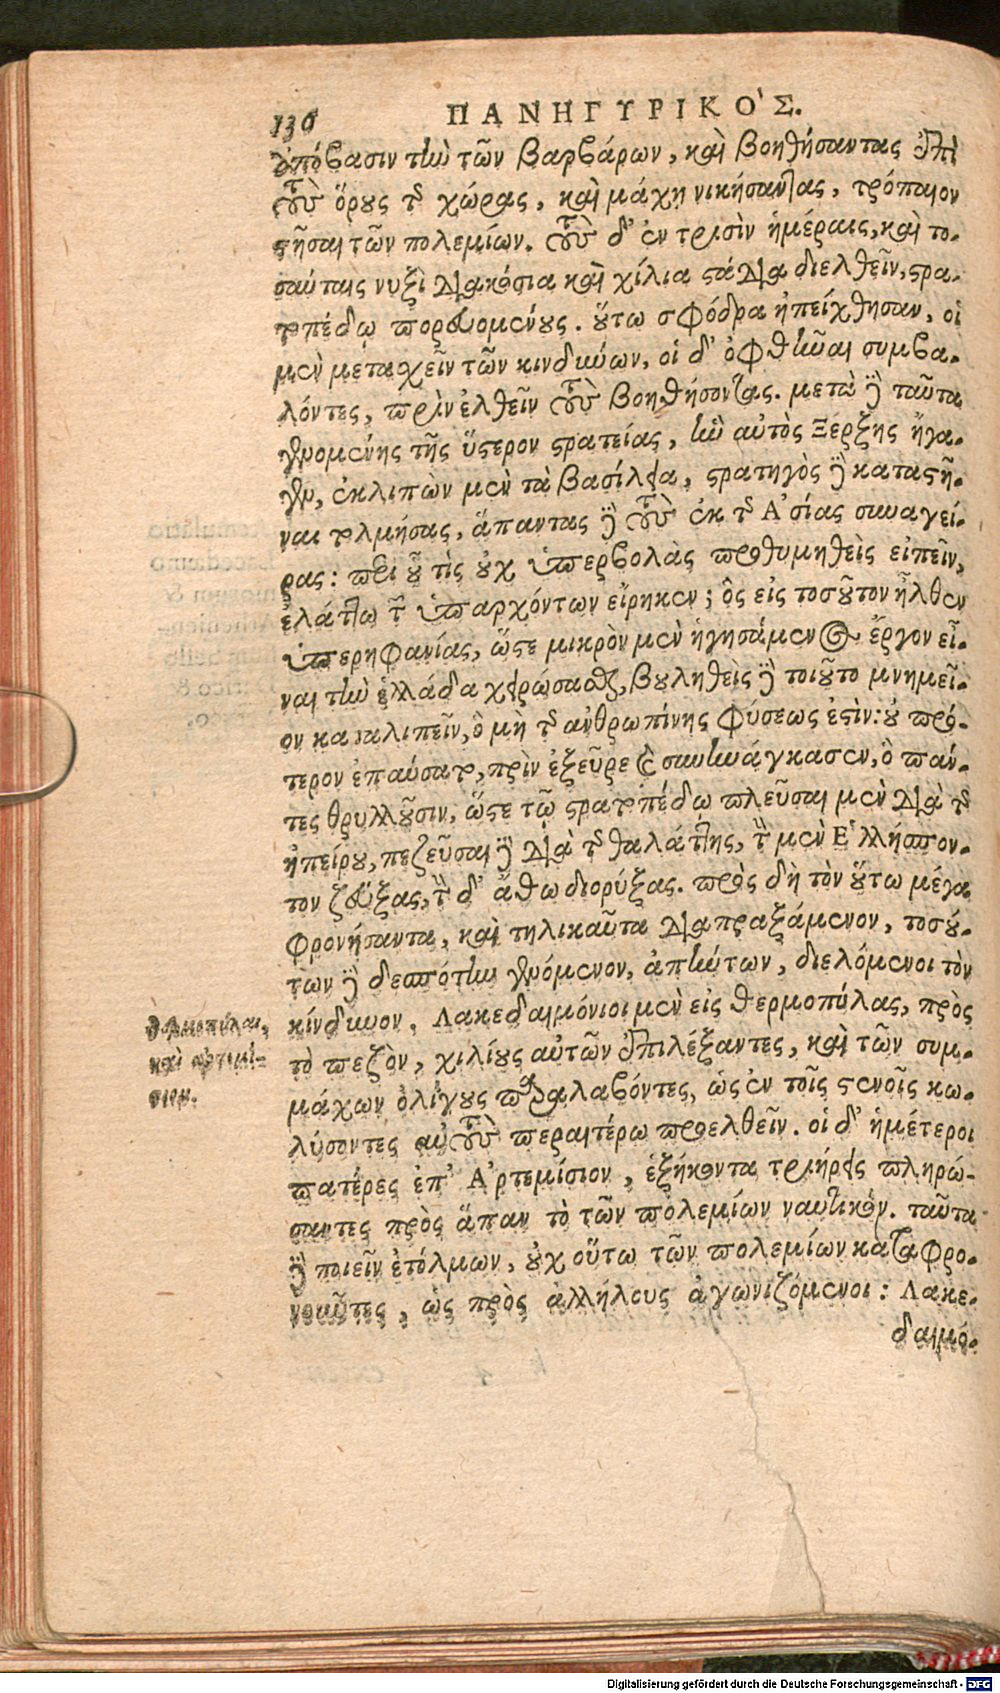 136
ΠΑΝΗΓΥΡΙΚΟ'Σ.
ἀπόβασιν τὴν τῶν βαρβάρων, καὶ βοηθήσαντας ἐπὶ
τοὺς ὅρους τῆς χώρας, καὶ μάχῃ νικήσαντας, τρόπαιον
στῆσαι τῶν πολεμίων. τοὺς δ' ἐν τρισὶν ἡμέραις, καὶ το-
σαύταις νυξὶ διακόσια καὶ χίλια στάδια διελθεῖν, στρα-
τοπέδῳ πορευομένους. οὕτω σφόδρα ἠπείχθησαν, οἱ
μὲν μετασχεῖν τῶν κινδύνων, οἱ δ' ὀφθῆναι συμβα-
λόντες, πρὶν ἐλθεῖν τοὺς βοηθήσοντας. μετὰ δὲ ταῦτα
γενομένης τῆς ὕστερον στρατείας, ἣν αὐτὸς Ξέρξης ἤγα-
γεν, ἐκλιπὼν μὲν τὰ βασίλεια, στρατηγὸς δὲ καταστῆ-
ναι τολμήσας, ἅπαντας δὲ τοὺς ἐκ τῆς Ἀσίας συναγεί-
ρας: περὶ οὗ τίς οὐχ ὑπερβολὰς προθυμηθεὶς εἰπεῖν,
ἐλάττω τῶν ὑπαρχόντων εἴρηκεν; ὃς εἰς τοσοῦτον ἦλθεν
ὑπερηφανίας, ὥστε μικρὸν μὲν ἡγησάμενος ἔργον εἶ-
ναι τὴν ἑλλάδα χειρώσασθαι, βουληθεὶς δὲ τοιοῦτο μνημεῖ-
ον καταλιπεῖν, ὃ μὴ τῆς ἀνθρωπίνης φύσεως ἐστίν: οὐ πρό-
τερον ἐπαύσατο, πρὶν ἐξεῦρε καὶ συνηνάγκασεν, ὃ πάν-
τες θρυλλοῦσιν, ὥστε τῷ στρατοπέδῳ πλεῦσαι μὲν διὰ τῆς
ἠπείρου, πεζεῦσαι δὲ διὰ τῆς θαλάττης, τὸν μὲν Ἑλλήσπον-
τον ζεύξας, τὸν δ' ἄθω διορύξας. πρὸς δὴ τὸν οὕτω μέγα
φρονήσαντα, καὶ τηλικαῦτα διαπραξάμενον, τοσού-
των δὲ δεσπότην γενόμενον, ἀπήντων, διελόμενοι τὸν
κίνδυνον, Λακεδαιμόνιοι μὲν εἰς θερμοπύλας, πρὸς
τὸ πεζὸν, χιλίους αὐτῶν ἐπιλέξαντες, καὶ τῶν συμ-
μάχων ὀλίγους παραλαβόντες, ὡς ἐν τοῖς στενοῖς κω-
λύσοντες αὐτοὺς περαιτέρω προελθεῖν. οἱ δ' ἡμέτεροι
πατέρες ἐπ' Ἀρτεμίσιον, ἑξήκοντα τριήρεις πληρώ-
σαντες πρὸς ἅπαν τὸ τῶν πολεμίων ναυτικόν. ταῦτα
δὲ ποιεῖν ἐτόλμων, οὐχ οὕτω τῶν πολεμίων καταφρο-
νοῦντες, ὡς πρὸς ἀλλήλους ἀγωνιζόμενοι: Λακε-
δαιμό-
θερμοπύλαι,
καὶ ἀρτεμί-
σιον.
Digitalisierung gefördert durch die Deutsche Forschungsgemeinschaft - DFG